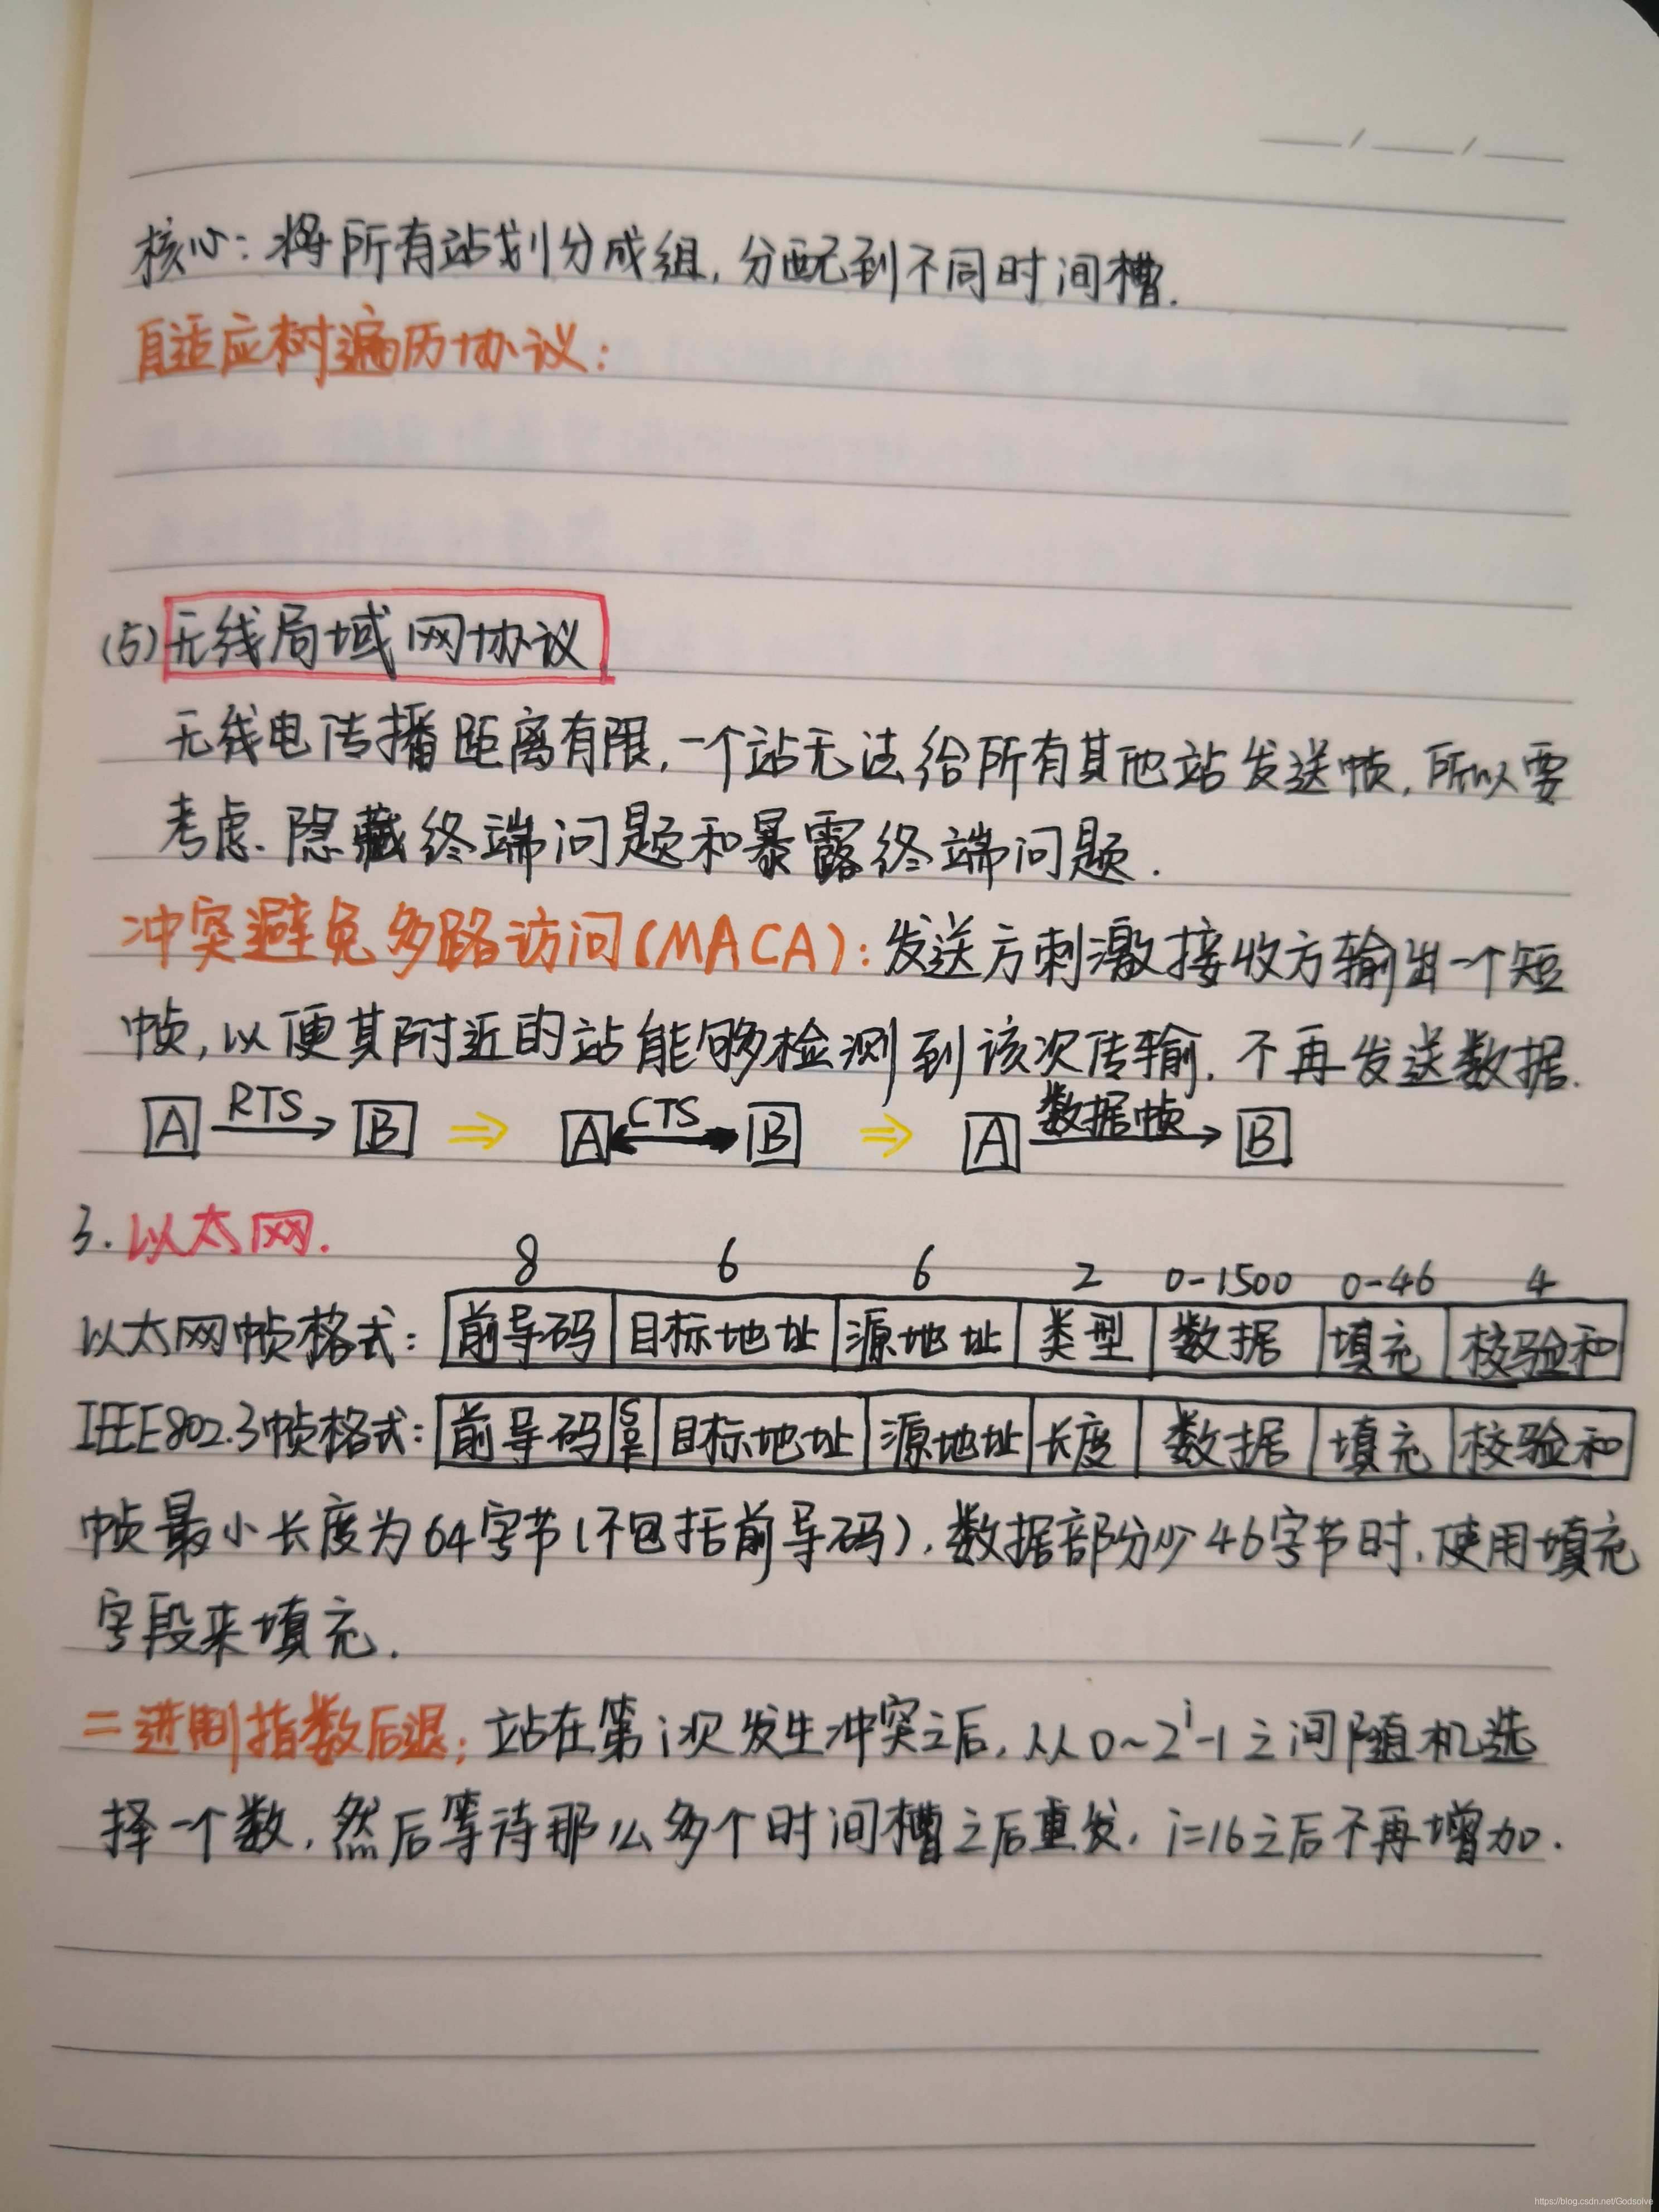 核心：将所有站划分成组，分配到不同时间槽.
自适应树遍历协议：
(5) 无线局域网协议
无线电传播距离有限，一个站无法给所有其他站发送帧，所以要
考虑.隐藏终端问题和暴露终端问题.
冲突避免多路访问(MACA)：发送方刺激接收方输出一个短
帧，以便其附近的站能够检测到该次传输，不再发送数据.
A RTS B ⇒ A CTS B ⇒ A 数据帧 B
3. 以太网.
8 6 6 2 0-1500 0-46 4
以太网帧格式： 前导码 目标地址 源地址 类型 数据 填充 校验和
IEEE802.3帧格式： 前导码 SOF 目标地址 源地址 长度 数据 填充 校验和
帧最小长度为64字节(不包括前导码)，数据部分少46字节时，使用填充
字段来填充.
二进制指数后退：站在第i次发生冲突之后，从0~2^i-1之间随机选
择一个数，然后等待那么多个时间槽之后重发，i=16之后不再增加.
https://blog.csdn.net/Godsolve